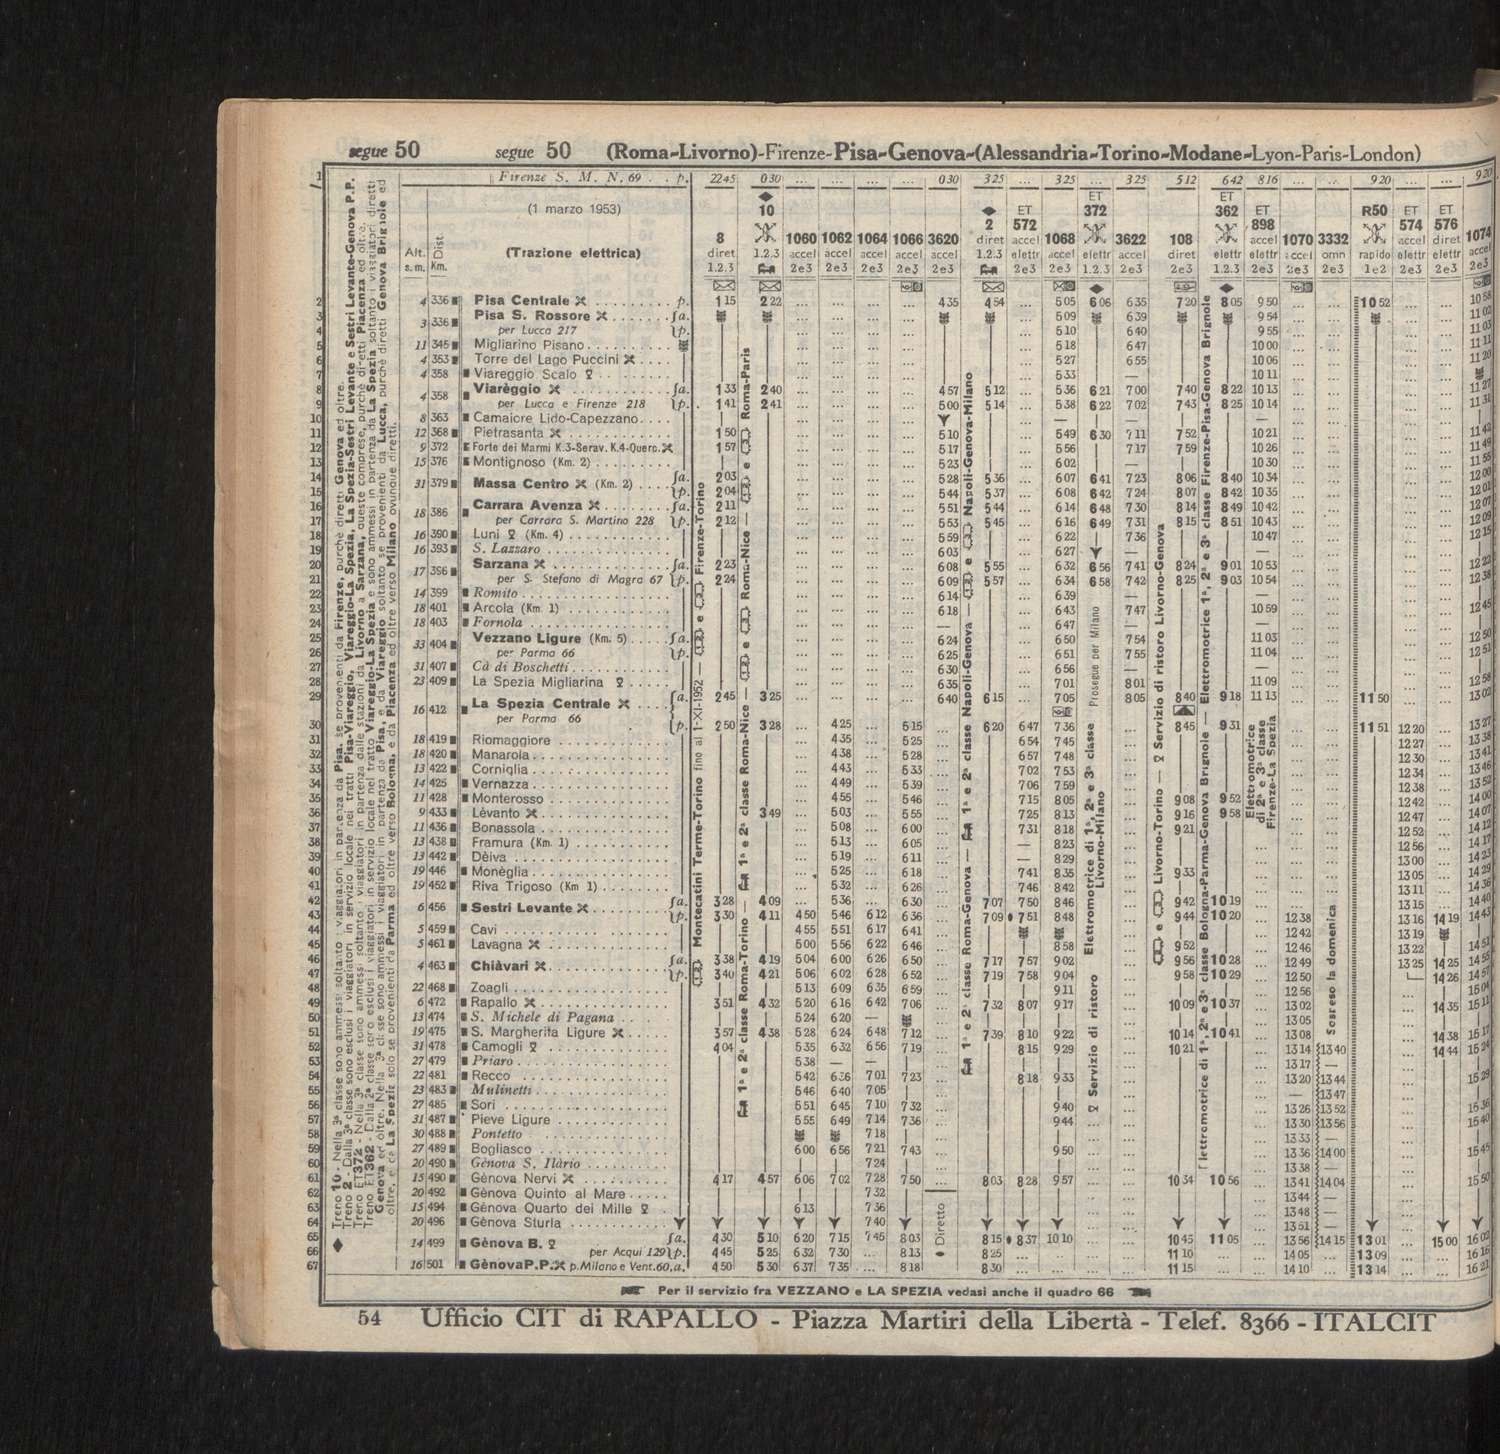 segue 50 segue 50 (Roma-Livorno)-Firenze-Pisa-Genova-(Alessandria-Torino-Modane-Lyon-Paris-London)
1 Firenze S. M. N. 69 . . p. 2245 030 ... ... ... ... 030 325 ... 325 ... 325 512 642 816 ... ... 920 ... ... 920
(1 marzo 1953)
(Trazione elettrica)
Alt. s. m. Dist. Km.
8 diret 1.2.3
10 1.2.3
1060 accel 2e3
1062 accel 2e3
1064 accel 2e3
1066 accel 2e3
3620 accel 2e3
2 diret 1.2.3
ET 572 accel elettr 2e3
1068 accel 2e3
ET 372 elettr 1.2.3
3622 accel 2e3
108 diret 2e3
ET 362 elettr 1.2.3
ET 898 accel elettr 2e3
1070 accel 2e3
3332 omn 2e3
R50 rapido 1e2
ET 574 accel elettr 2e3
ET 576 diret elettr 2e3
1074 accel 2e3
2 4 336 Pisa Centrale . . . p. 1 15 2 22 ... ... ... ... 4 35 4 54 ... 5 05 6 06 6 35 7 20 8 05 9 50 ... ... 10 52 ... ... 10 58
3 3 336 Pisa S. Rossore . . . a. 5 09 6 39 9 54 11 02
4 per Lucca 217 p. 5 10 6 40 9 55 11 03
5 11 345 Migliarino Pisano 5 18 6 47 10 00 11 11
6 4 353 Torre del Lago Puccini 5 27 6 55 10 06 11 20
7 4 358 Viareggio Scalo 5 33 — 10 11
8 4 358 Viarèggio a. 1 33 2 40 4 57 5 12 5 36 6 21 7 00 7 40 8 22 10 13 11 27
9 per Lucca e Firenze 218 p. 1 41 2 41 5 00 5 14 5 38 6 22 7 02 7 43 8 25 10 14 11 31
10 8 363 Camaiore Lido-Capezzano — — —
11 12 368 Pietrasanta 1 50 5 10 5 49 6 30 7 11 7 52 10 21 11 42
12 9 372 Forte dei Marmi K.3-Serav. K.4-Querc. 1 57 5 17 5 56 7 17 7 59 10 26 11 49
13 15 376 Montignoso (Km. 2) 5 23 6 02 — 10 30 11 55
14 31 379 Massa Centro (Km. 2) a. 2 03 5 28 5 36 6 07 6 41 7 23 8 06 8 40 10 34 12 00
15 p. 2 04 5 44 5 37 6 08 6 42 7 24 8 07 8 42 10 35 12 01
16 18 386 Carrara Avenza a. 2 11 5 51 5 44 6 14 6 48 7 30 8 14 8 49 10 42 12 07
17 per Carrara S. Martino 228 p. 2 12 5 53 5 45 6 16 6 49 7 31 8 15 8 51 10 43 12 09
18 16 390 Luni (Km. 4) 5 59 6 22 7 36 10 47 12 15
19 16 393 S. Lazzaro 6 03 6 27 — —
20 17 396 Sarzana a. 2 23 6 08 5 55 6 32 6 56 7 41 8 24 9 01 10 53 12 22
21 per S. Stefano di Magra 67 p. 2 24 6 09 5 57 6 34 6 58 7 42 8 25 9 03 10 54 12 38
22 14 399 Romito 6 14 6 39 — —
23 18 401 Arcola (Km. 1) 6 18 6 43 7 47 10 59 12 45
24 18 403 Fornola — 6 47 — —
25 33 404 Vezzano Ligure (Km. 5) a. 6 24 6 50 7 54 11 03 12 50
26 per Parma 66 p. 6 25 6 51 7 55 11 04 12 51
27 31 407 Cà di Boschetti 6 30 6 56 — —
28 23 409 La Spezia Migliarina 6 35 7 01 8 01 11 09 12 58
29 16 412 La Spezia Centrale a. 2 45 3 25 6 40 6 15 7 05 8 05 8 40 9 18 11 13 11 50 13 02
30 per Parma 66 p. 2 50 3 28 4 25 6 15 6 20 6 47 7 36 8 45 9 31 11 51 12 20 13 27
31 18 419 Riomaggiore 4 35 5 25 6 54 7 45 12 27 13 38
32 18 420 Manarola 4 38 5 28 6 57 7 48 12 30 13 41
33 13 422 Corniglia 4 43 5 33 7 02 7 53 12 34 13 46
34 14 425 Vernazza 4 49 5 39 7 06 7 59 12 38 13 52
35 11 428 Monterosso 4 55 5 46 7 15 8 05 9 08 9 52 12 42 14 00
36 9 433 Lèvanto 3 49 5 03 5 55 7 25 8 13 9 16 9 58 12 47 14 07
37 11 436 Bonassola 5 08 6 00 7 31 8 18 9 21 12 52 14 12
38 13 438 Framura (Km. 1) 5 13 6 05 — 8 23 12 56 14 17
39 13 442 Dèiva 5 19 6 11 — 8 29 13 00 14 23
40 19 446 Monèglia 5 25 6 18 7 41 8 35 9 33 13 05 14 29
41 19 452 Riva Trigoso (Km 1) 5 32 6 26 7 46 8 42 13 11 14 36
42 6 456 Sestri Levante a. 3 28 4 09 5 36 6 30 7 07 7 50 8 46 9 42 10 19 13 15 14 40
43 p. 3 30 4 11 4 50 5 46 6 12 6 36 7 09 7 51 8 48 9 44 10 20 12 38 13 16 14 19 14 43
44 5 459 Cavi 4 55 5 51 6 17 6 41 12 42 13 19
45 5 461 Lavagna 5 00 5 56 6 22 6 46 8 58 9 52 12 46 13 22 14 51
46 4 463 Chiàvari a. 3 38 4 19 5 04 6 00 6 26 6 50 7 17 7 57 9 02 9 56 10 28 12 49 13 25 14 25 14 55
47 p. 3 40 4 21 5 06 6 02 6 28 6 52 7 19 7 58 9 04 9 58 10 29 12 50 14 26 14 57
48 22 468 Zoagli 5 13 6 09 6 35 6 59 9 11 12 56 15 04
49 6 472 Rapallo 3 51 4 32 5 20 6 16 6 42 7 06 7 32 8 07 9 17 10 09 10 37 13 02 14 35 15 11
50 13 474 S. Michele di Pagana 5 24 6 20 — 13 05
51 19 475 S. Margherita Ligure 3 57 4 38 5 28 6 24 6 48 7 12 7 39 8 10 9 22 10 14 10 41 13 08 14 38 15 17
52 31 478 Camogli 4 04 5 35 6 32 6 56 7 19 8 15 9 29 10 21 13 14 13 40 14 44
53 27 479 Priaro 5 38 — — 13 17 —
54 22 481 Recco 5 42 6 36 7 01 7 23 8 18 9 33 13 20 13 44 15 29
55 23 483 Mulinetti 5 46 6 40 7 05 — 13 47
56 27 485 Sori 5 51 6 45 7 10 7 32 9 40 13 26 13 52 15 36
57 31 487 Pieve Ligure 5 55 6 49 7 14 7 36 9 44 13 30 13 56 15 40
58 30 488 Pontetto 7 18 13 33 —
59 27 489 Bogliasco 6 00 6 56 7 21 7 43 9 50 13 36 14 00 15 45
60 20 490 Gènova S. Ilàrio 7 24 13 38 —
61 15 490 Gènova Nervi 4 17 4 57 6 06 7 02 7 28 7 50 8 03 8 28 9 57 10 34 10 56 13 41 14 04 15 50
62 20 492 Gènova Quinto al Mare 7 32 13 44 —
63 15 494 Gènova Quarto dei Mille 6 13 7 36 13 48 —
64 20 496 Gènova Sturla 7 40 13 51 —
65 14 499 Gènova B. a. 4 30 5 10 6 20 7 15 7 45 8 03 8 15 8 37 10 10 10 45 11 05 13 56 14 15 13 01 15 00 16 02
66 per Acqui 129 p. 4 45 5 25 6 32 7 30 ... 8 13 8 25 11 10 14 05 13 09 16 16
67 16 501 Gènova P.P. p. Milano e Vent. 60, a. 4 50 5 30 6 37 7 35 ... 8 18 8 30 11 15 14 10 13 14 16 21
Montecatini Terme-Torino fino al 1-XI-1952 — e Firenze-Torino
1ª e 2ª classe Roma-Torino — 1ª e 2ª classe Roma-Nice — e Roma-Nice — e Roma-Paris
Diretto
1ª e 2ª classe Roma-Genova — 1ª e 2ª classe Napoli-Genova — e Napoli-Genova-Milano
Servizio di ristoro Elettromotrice di 1ª, 2ª e 3ª classe Livorno-Milano
Prosegue per Milano
e Livorno-Torino — Servizio di ristoro Livorno-Genova
Elettromotrice di 1ª, 2ª e 3ª classe Bologna-Parma-Genova Brignole — Elettromotrice 1ª, 2ª e 3ª classe Firenze-Pisa-Genova Brignole
Elettromotrice di 2ª e 3ª classe Firenze-La Spezia
Sospeso la domenica
Treno 10 - Nella 3ª classe sono ammessi soltanto i viaggiatori in partenza da Pisa, se provenienti da Firenze, purchè diretti Genova ed oltre.
Per il servizio fra VEZZANO e LA SPEZIA vedasi anche il quadro 66
54 Ufficio CIT di RAPALLO - Piazza Martiri della Libertà - Telef. 8366 - ITALCIT